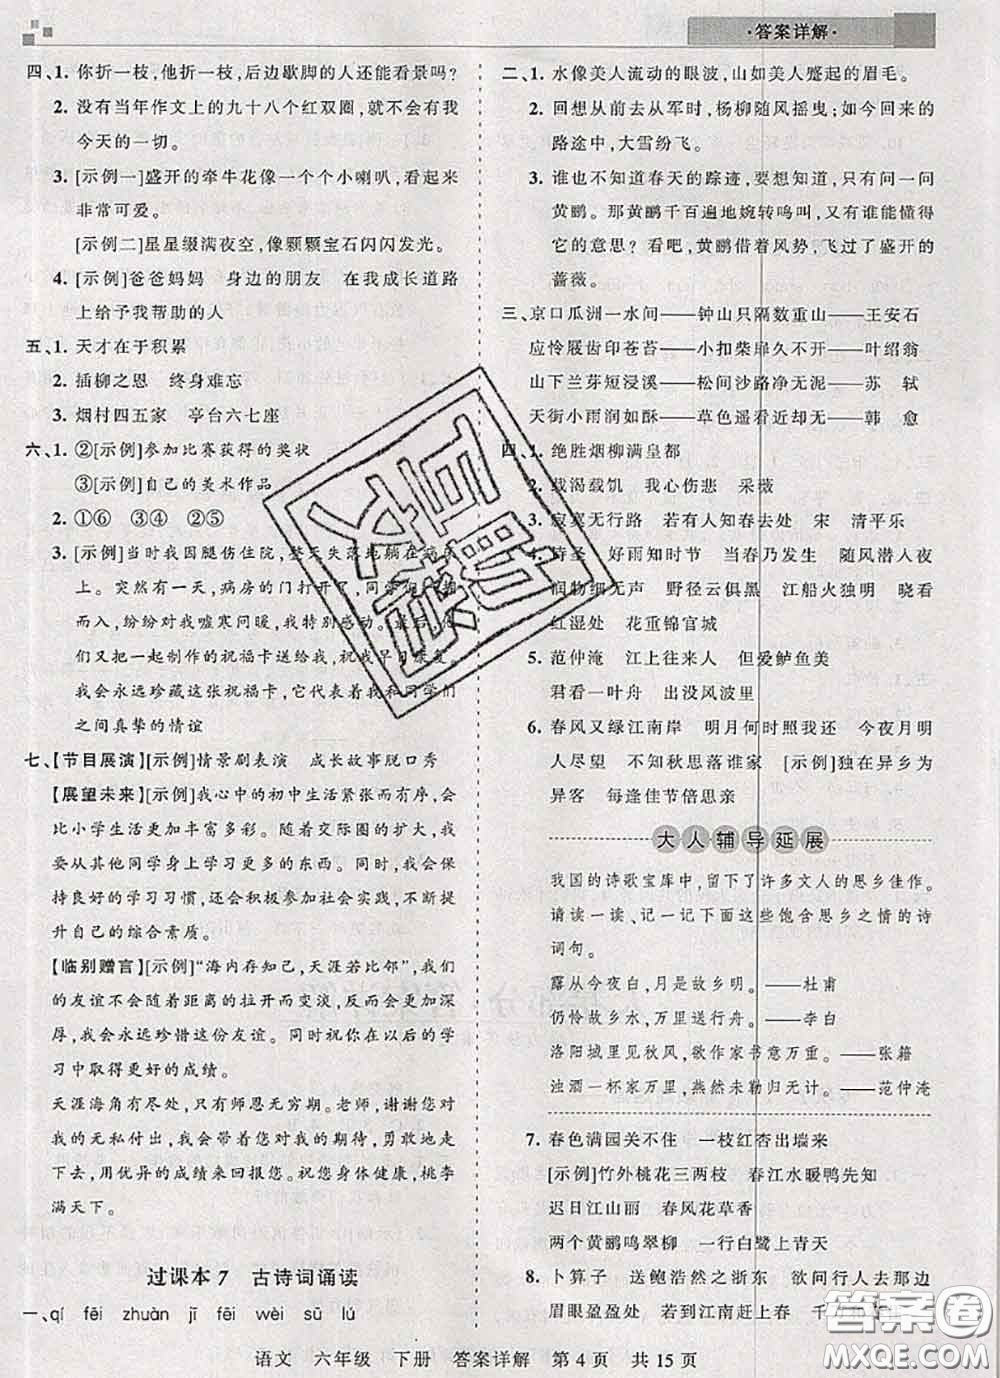 ·答案详解·
四、1. 你折一枝,他折一枝,后边歇脚的人还能看景吗?
2. 没有当年作文上的九十八个红双圈,就不会有我
今天的一切。
3. [示例一]盛开的牵牛花像一个个小喇叭,看起来
非常可爱。
[示例二]星星缀满夜空,像颗颗宝石闪闪发光。
4. [示例]爸爸妈妈 身边的朋友 在我成长道路
上给予我帮助的人
五、1. 天才在于积累
2. 插柳之恩 终身难忘
3. 烟村四五家 亭台六七座
六、1. ②[示例]参加比赛获得的奖状
③[示例]自己的美术作品
2. ①⑥ ③④ ②⑤
3. [示例]当时我因腿伤住院,整天失落地躺在病床
上。突然有一天,病房的门打开了,同学
而入,纷纷对我嘘寒问暖,我特别感动。最后,
们又把一起制作的祝福卡送给我,祝我早日康复。
我会永远珍藏这张祝福卡,它代表着我和同学们
之间真挚的情谊
七、【节目展演】[示例]情景剧表演 成长故事脱口秀
【展望未来】[示例]我心中的初中生活紧张而有序,会
比小学生活丰富多彩。随着交际圈的扩大,我
会从其他同学身上学习更多的东西。同时,我会保
持良好的学习习惯,还会积极参加社会实践,不断提
升自己的综合素质。
【临别赠言】[示例]“海内存知己,天涯若比邻”,我们
的友谊不会随着距离的拉开而变淡,反而会更加深
厚,我会永远珍惜这份友谊。同时祝你在以后的学
习中取得更好的成绩。
天涯海角有尽处,只有师恩无穷期。老师,谢谢您对
我的无私付出,我会带着您对我的期待,勇敢地走
下去,用优异的成绩来回报您。祝您身体健康,桃李
满天下。
过课本 7 古诗词诵读
一、qí fēi zhuàn jī fēi wèi sū lú
二、1. 水像美人流动的眼波,山如美人蹙起的眉毛。
2. 回想当初去从军时,杨柳随风摇曳;如今回来的
路途中,大雪纷飞。
3. 谁也不知道春天的踪迹,要想知道,只有问一问
黄鹂。那黄鹂千百遍地婉转鸣叫,又有谁能懂得
它的意思?看吧,黄鹂借着风势,飞过了盛开的
蔷薇。
三、京口瓜洲一水间——钟山只隔数重山——王安石
应怜屐齿印苍苔——小扣柴扉久不开——叶绍翁
山下兰芽短浸溪——松间沙路净无泥——苏 轼
天街小雨润如酥——草色遥看近却无——韩 愈
四、1. 绝胜烟柳满皇都
2. 载渴载饥 我心伤悲 采薇
3. 寂寞无行路 若有人知春去处 宋 清平乐
4. 诗圣 好雨知时节 当春乃发生 随风潜入夜
润物细无声 野径云俱黑 江船火独明 晓看
红湿处 花重锦官城
5. 范仲淹 江上往来人 但爱鲈鱼美
君看一叶舟 出没风波里
6. 春风又绿江南岸 明月何时照我还 今夜月明
人尽望 不知秋思落谁家 [示例]独在异乡为
异客 每逢佳节倍思亲
大人辅导延展
我国的诗歌宝库中,留下了许多文人的思乡佳作。
请读一读、记一记下面这些饱含思乡之情的诗
词句。
露从今夜白,月是故乡明。——杜甫
仍怜故乡水,万里送行舟。——李白
洛阳城里见秋风,欲作家书意万重。——张籍
浊酒一杯家万里,燕然未勒归无计。——范仲淹
7. 春色满园关不住 一枝红杏出墙来
[示例]竹外桃花三两枝 春江水暖鸭先知
迟日江山丽 春风花草香
两个黄鹂鸣翠柳 一行白鹭上青天
8. 卜算子 送鲍浩然之浙东 欲问行人去那边
眉眼盈盈处 若到江南赶上春
语文 六年级 下册 答案详解 第 4 页 共 15 页
答案圈
MXQE.COM